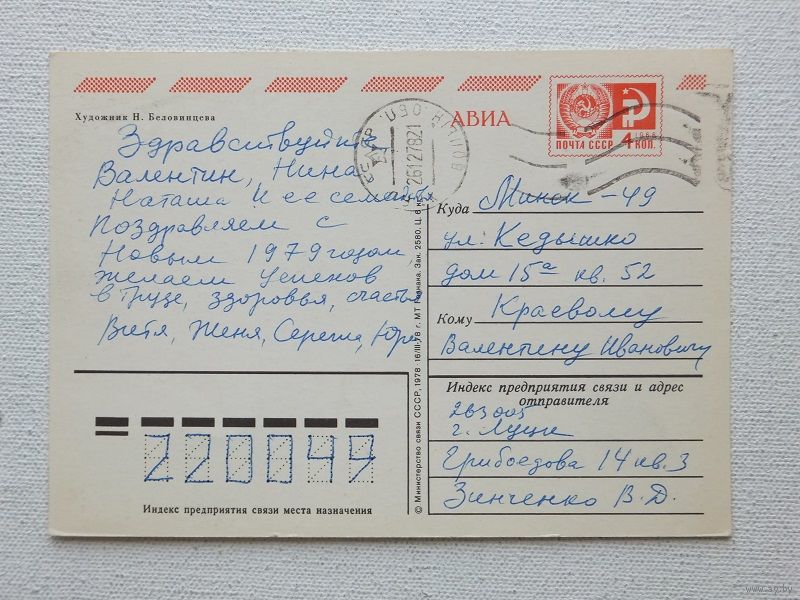 Художник Н. Беловинцева
АВИА
ПОЧТА СССР
1966
4 КОП.
26127821
Здравствуйте,
Валентин, Нина
Наташа и ее семья
Поздравляем с
Новым 1979 годом
желаем успехов
в труде, здоровья, счастья
Витя, Женя, Сережа, Юра
Куда Минск-49
ул. Кедышко
дом 15а кв. 52
Кому Краевому
Валентину Ивановичу
Индекс предприятия связи и адрес
отправителя
263005
г. Луцк
Грибоедова 14 кв. 3
Зинченко В.Д.
220049
Индекс предприятия связи места назначения
© Министерство связи СССР, 1978 · 16/III-78 г. МТ Гознака. Зак. 2560. Ц. 6 к.
www.ay.by